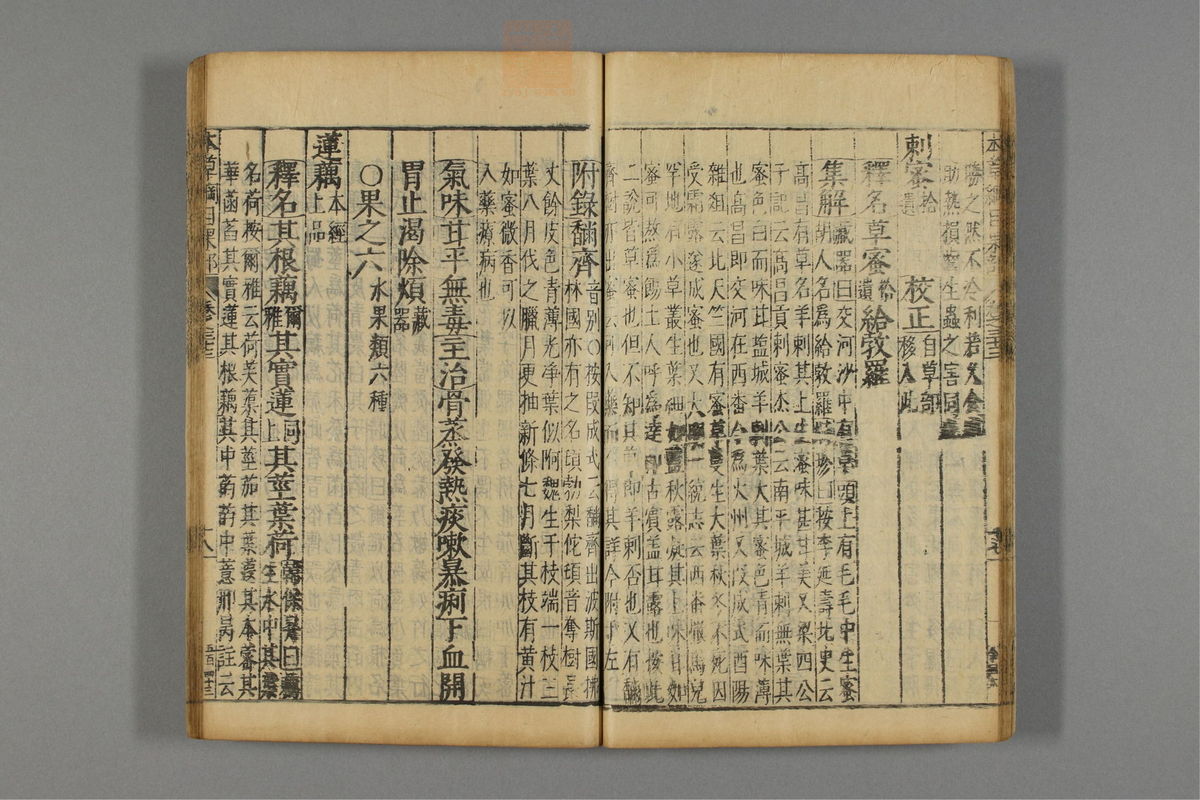 勝之然不冷利者久食
助熱損齒生蟲之害同
刺蜜拾遺 校正自草部移入此
釋名草蜜拾遺給敦羅
集解藏器曰交河沙中有草頭上有毛毛中生蜜
胡人名爲給敦羅 時珍曰按李延壽北史云
高昌有草名羊刺其上生蜜味甚甘美又梁四公
子記云高昌貢刺蜜杰公云南平城羊刺無葉其
蜜色白而味甘塩城羊刺葉大其蜜色青而味薄
也高昌即交河在西番今爲火州又段成式酉陽
雜俎云北天竺國有蜜草蔓生大葉秋冬不死因
受霜露遂成蜜也又大明一統志云西番撒馬兒
罕地有小草叢生葉細如藍秋露凝其上味甘如
蜜可熬爲餳土人呼爲達即古賓蓋甘露也按此
二說皆草蜜也但不知其草即羊刺否也又有䤄
齊樹亦出蜜云可入藥而不得其詳今附于左
附錄䤄齊音別〇按段成式云䤄齊出波斯國拂
林國亦有之名頊勃梨佗頊音奪樹長
丈餘皮色青薄光净葉似阿魏生于枝端一枝三
葉八月伐之臘月更抽新條七月斷其枝有黄汁
如蜜微香可以
入藥療病也
氣味甘平無毒主治骨蒸發熱痰嗽暴痢下血開
胃止渴除煩藏器
〇果之六水果類六種
蓮藕本經上品
釋名其根藕爾雅其實蓮上同其莖葉荷韓保昇曰藕生水中其葉
名荷按爾雅云荷芙蕖其莖茄其葉蕸其本蔤其
華菡萏其實蓮其根藕其中菂菂中薏邢昺註云
本草綱目果部 卷三十三 十八